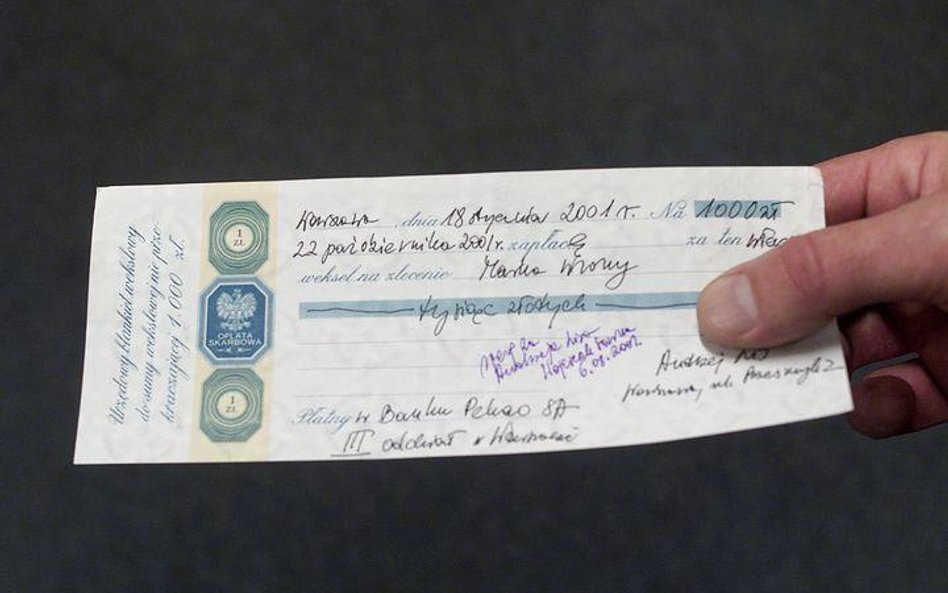 Urzędowy blankiet wekslowy
do sumy wekslowej nie prze-
kraczającej 1.000 zł.
1
ZŁ
OPŁATA
SKARBOWA
1
ZŁ
Warszawa, dnia 18 stycznia 2001 r. Na 1000 zł
22 października 2001 r. zapłacę za ten
weksel na zlecenie Marka Wrony
tysiąc złotych
6.03.2001
Andrzej
Warszawa, ul. 2
Płatny w Banku Pekao SA
III oddział w Warszawie